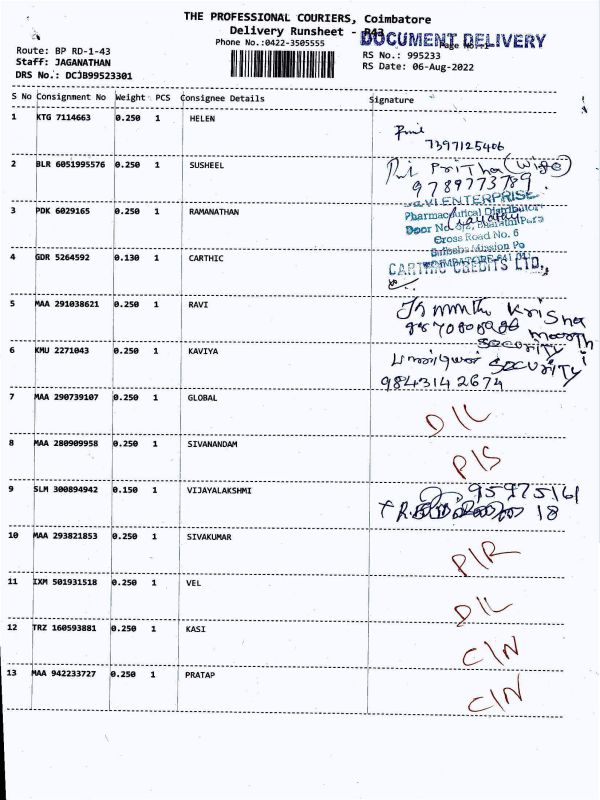 THE PROFESSIONAL COURIERS, Coimbatore
Delivery Runsheet - R43
DOCUMENT DELIVERY
Phone No.:0422-3505555
Page No.:1
Route: BP RD-1-43
RS No.: 995233
Staff: JAGANATHAN
RS Date: 06-Aug-2022
DRS No.: DCJB99523301
S No Consignment No Weight PCS Consignee Details Signature
1 KTG 7114663 0.250 1 HELEN
7397125406
2 BLR 6051995576 0.250 1 SUSHEEL
Pritha (wife)
9789773789
3 PDK 6029165 0.250 1 RAMANATHAN
ENTERPRISE
Pharmaceutical Distributor
Door No.
Cross Road No. 6
Saibaba Mission Po
4 GDR 5264592 0.130 1 CARTHIC
CARTHIC CREDITS LTD.,
5 MAA 291038621 0.250 1 RAVI
Krishna
security
6 KMU 2271043 0.250 1 KAVIYA
security
9843142674
7 MAA 290739107 0.250 1 GLOBAL
D/L
8 MAA 280909958 0.250 1 SIVANANDAM
P/S
9 SLM 300894942 0.150 1 VIJAYALAKSHMI
95975161
18
10 MAA 293821853 0.250 1 SIVAKUMAR
P/R
11 IXM 501931518 0.250 1 VEL
D/L
12 TRZ 160593881 0.250 1 KASI
C/N
13 MAA 942233727 0.250 1 PRATAP
C/N